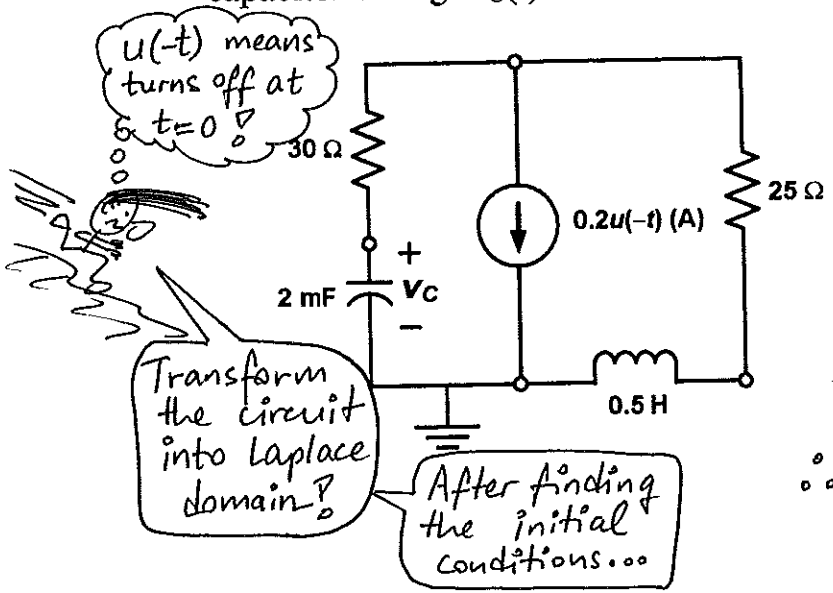 u(-t) means
turns off at
t=0!
30 Ω
0.2u(–t) (A)
25 Ω
+
2 mF
vC
–
0.5 H
Transform
the circuit
into Laplace
domain!
After finding
the initial
conditions...